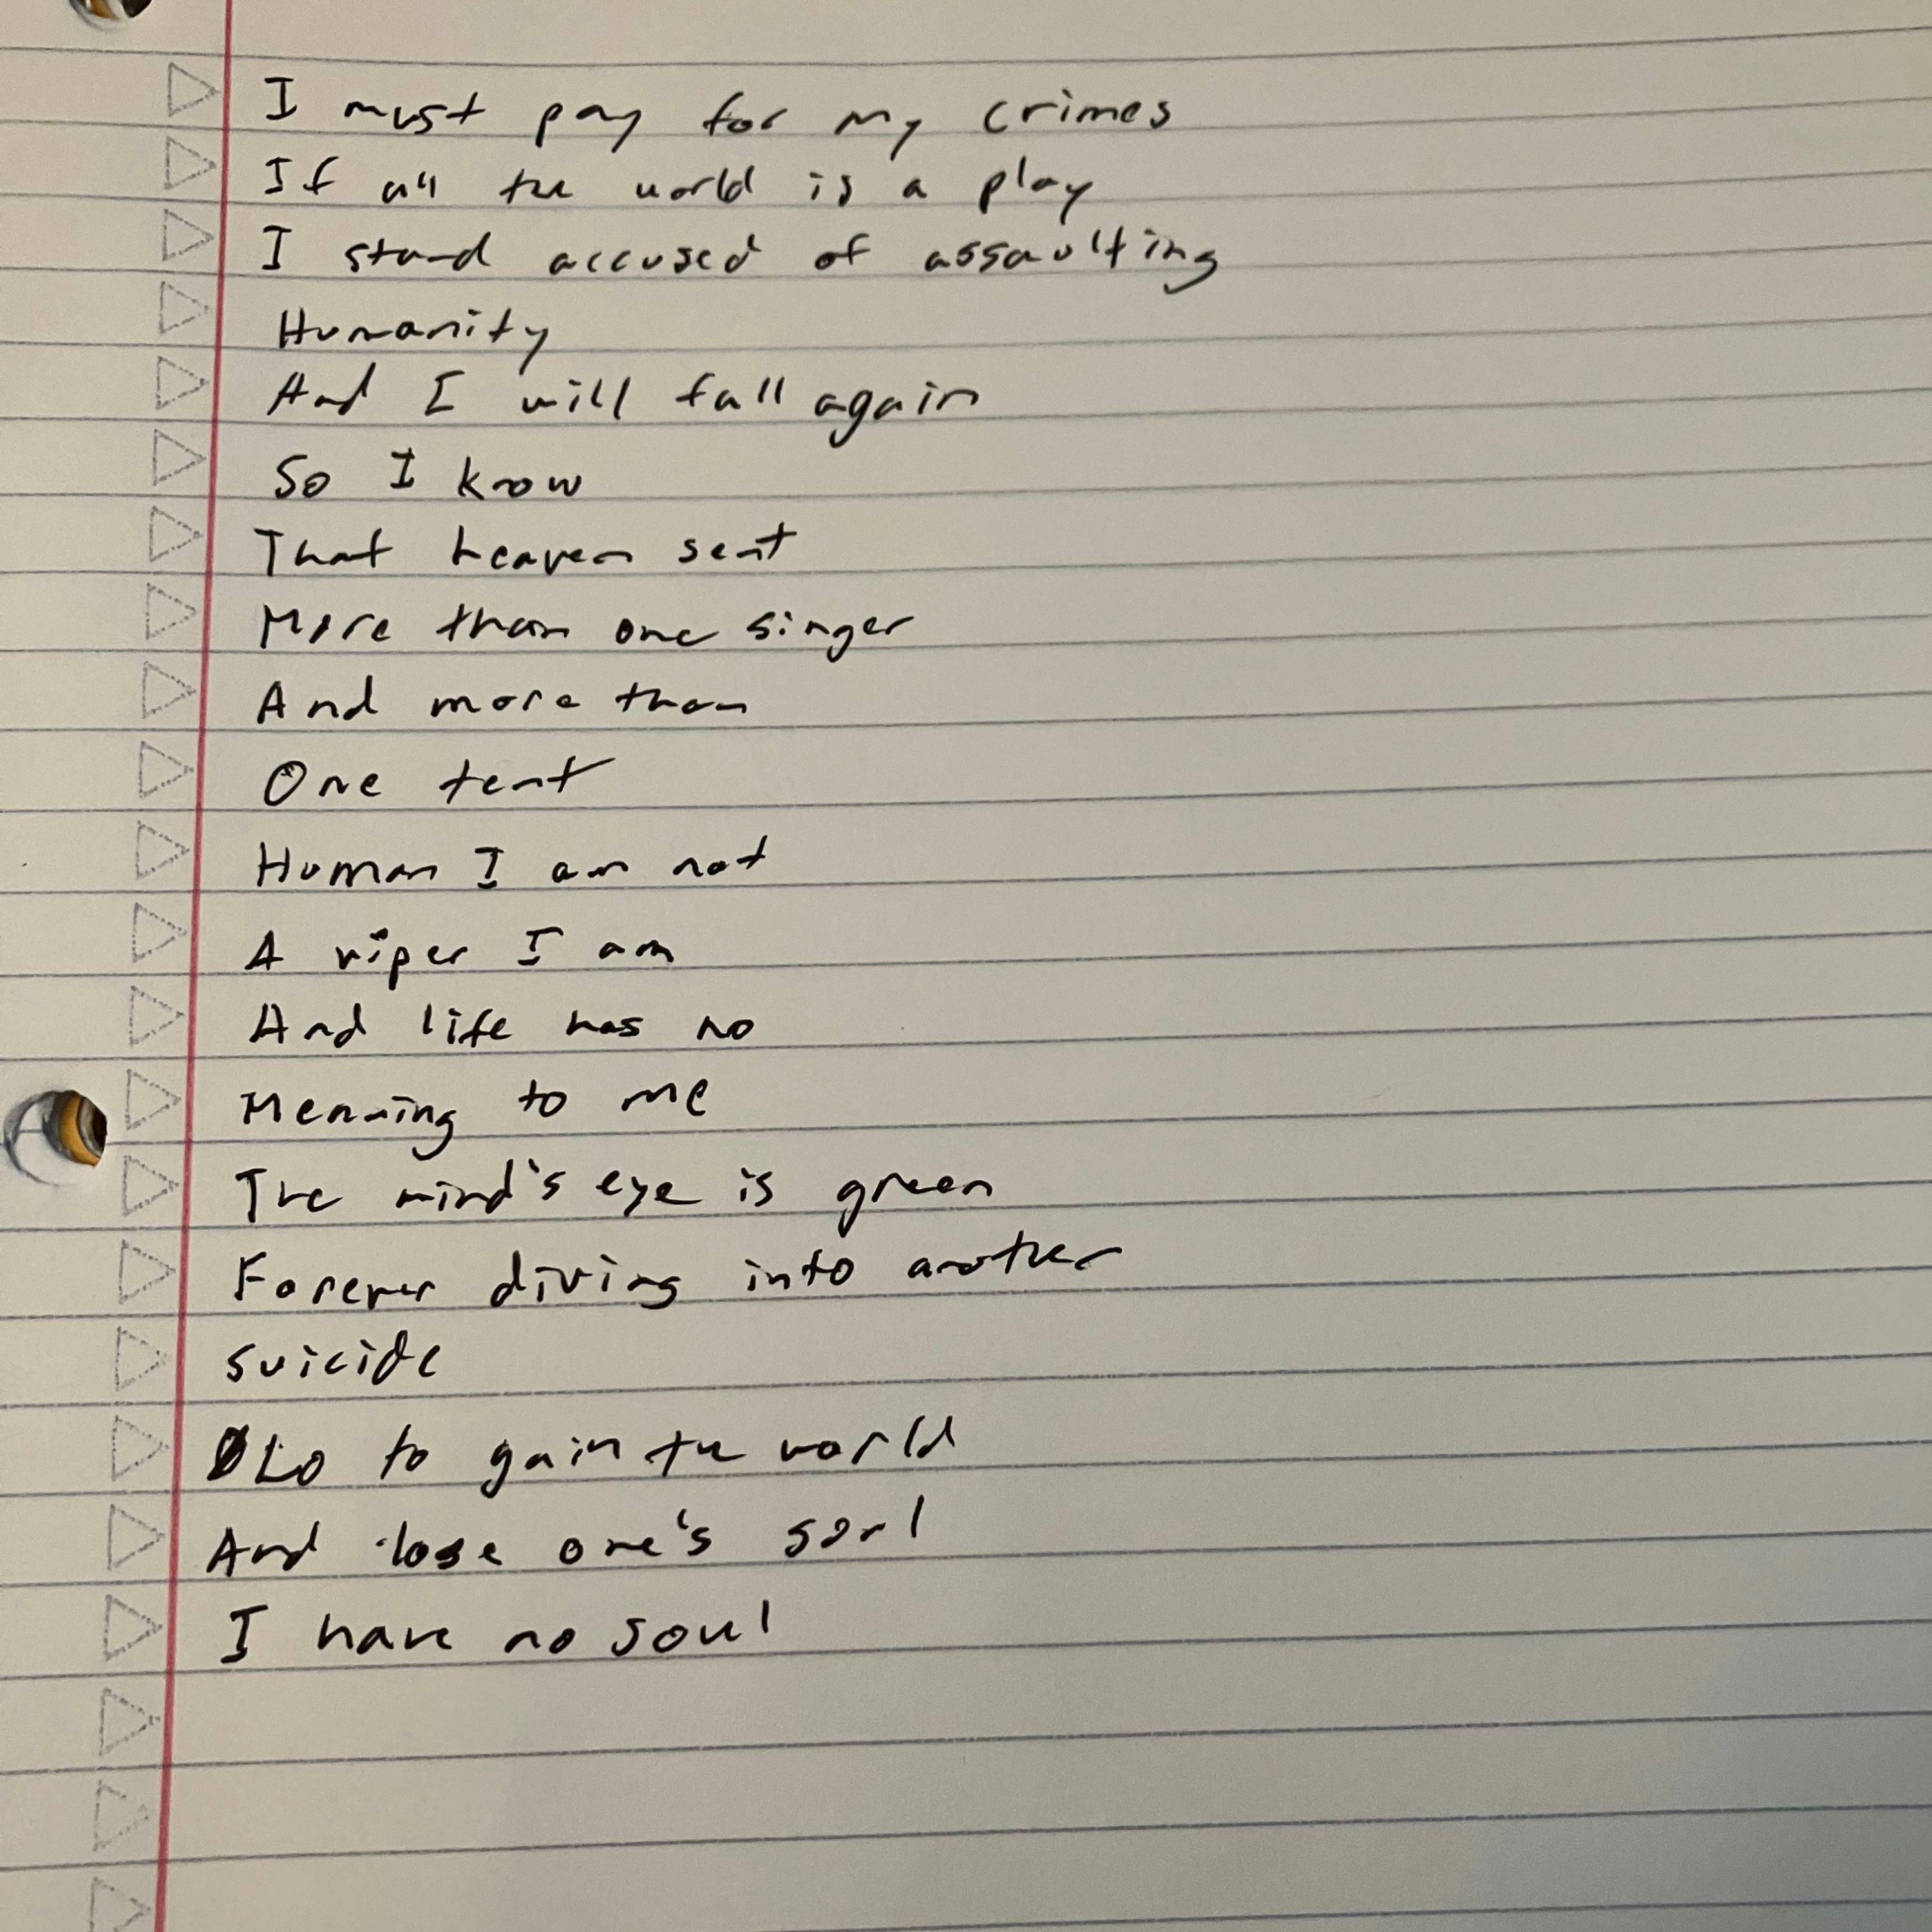 I must pay for my crimes
If all the world is a play
I stand accused of assaulting
Humanity
And I will fall again
So I know
That heaven sent
More than one singer
And more than
One tent
Human I am not
A viper I am
And life has no
Meaning to me
The mind's eye is green
Forever diving into another
suicide
Lo to gain the world
And lose one's soul
I have no soul